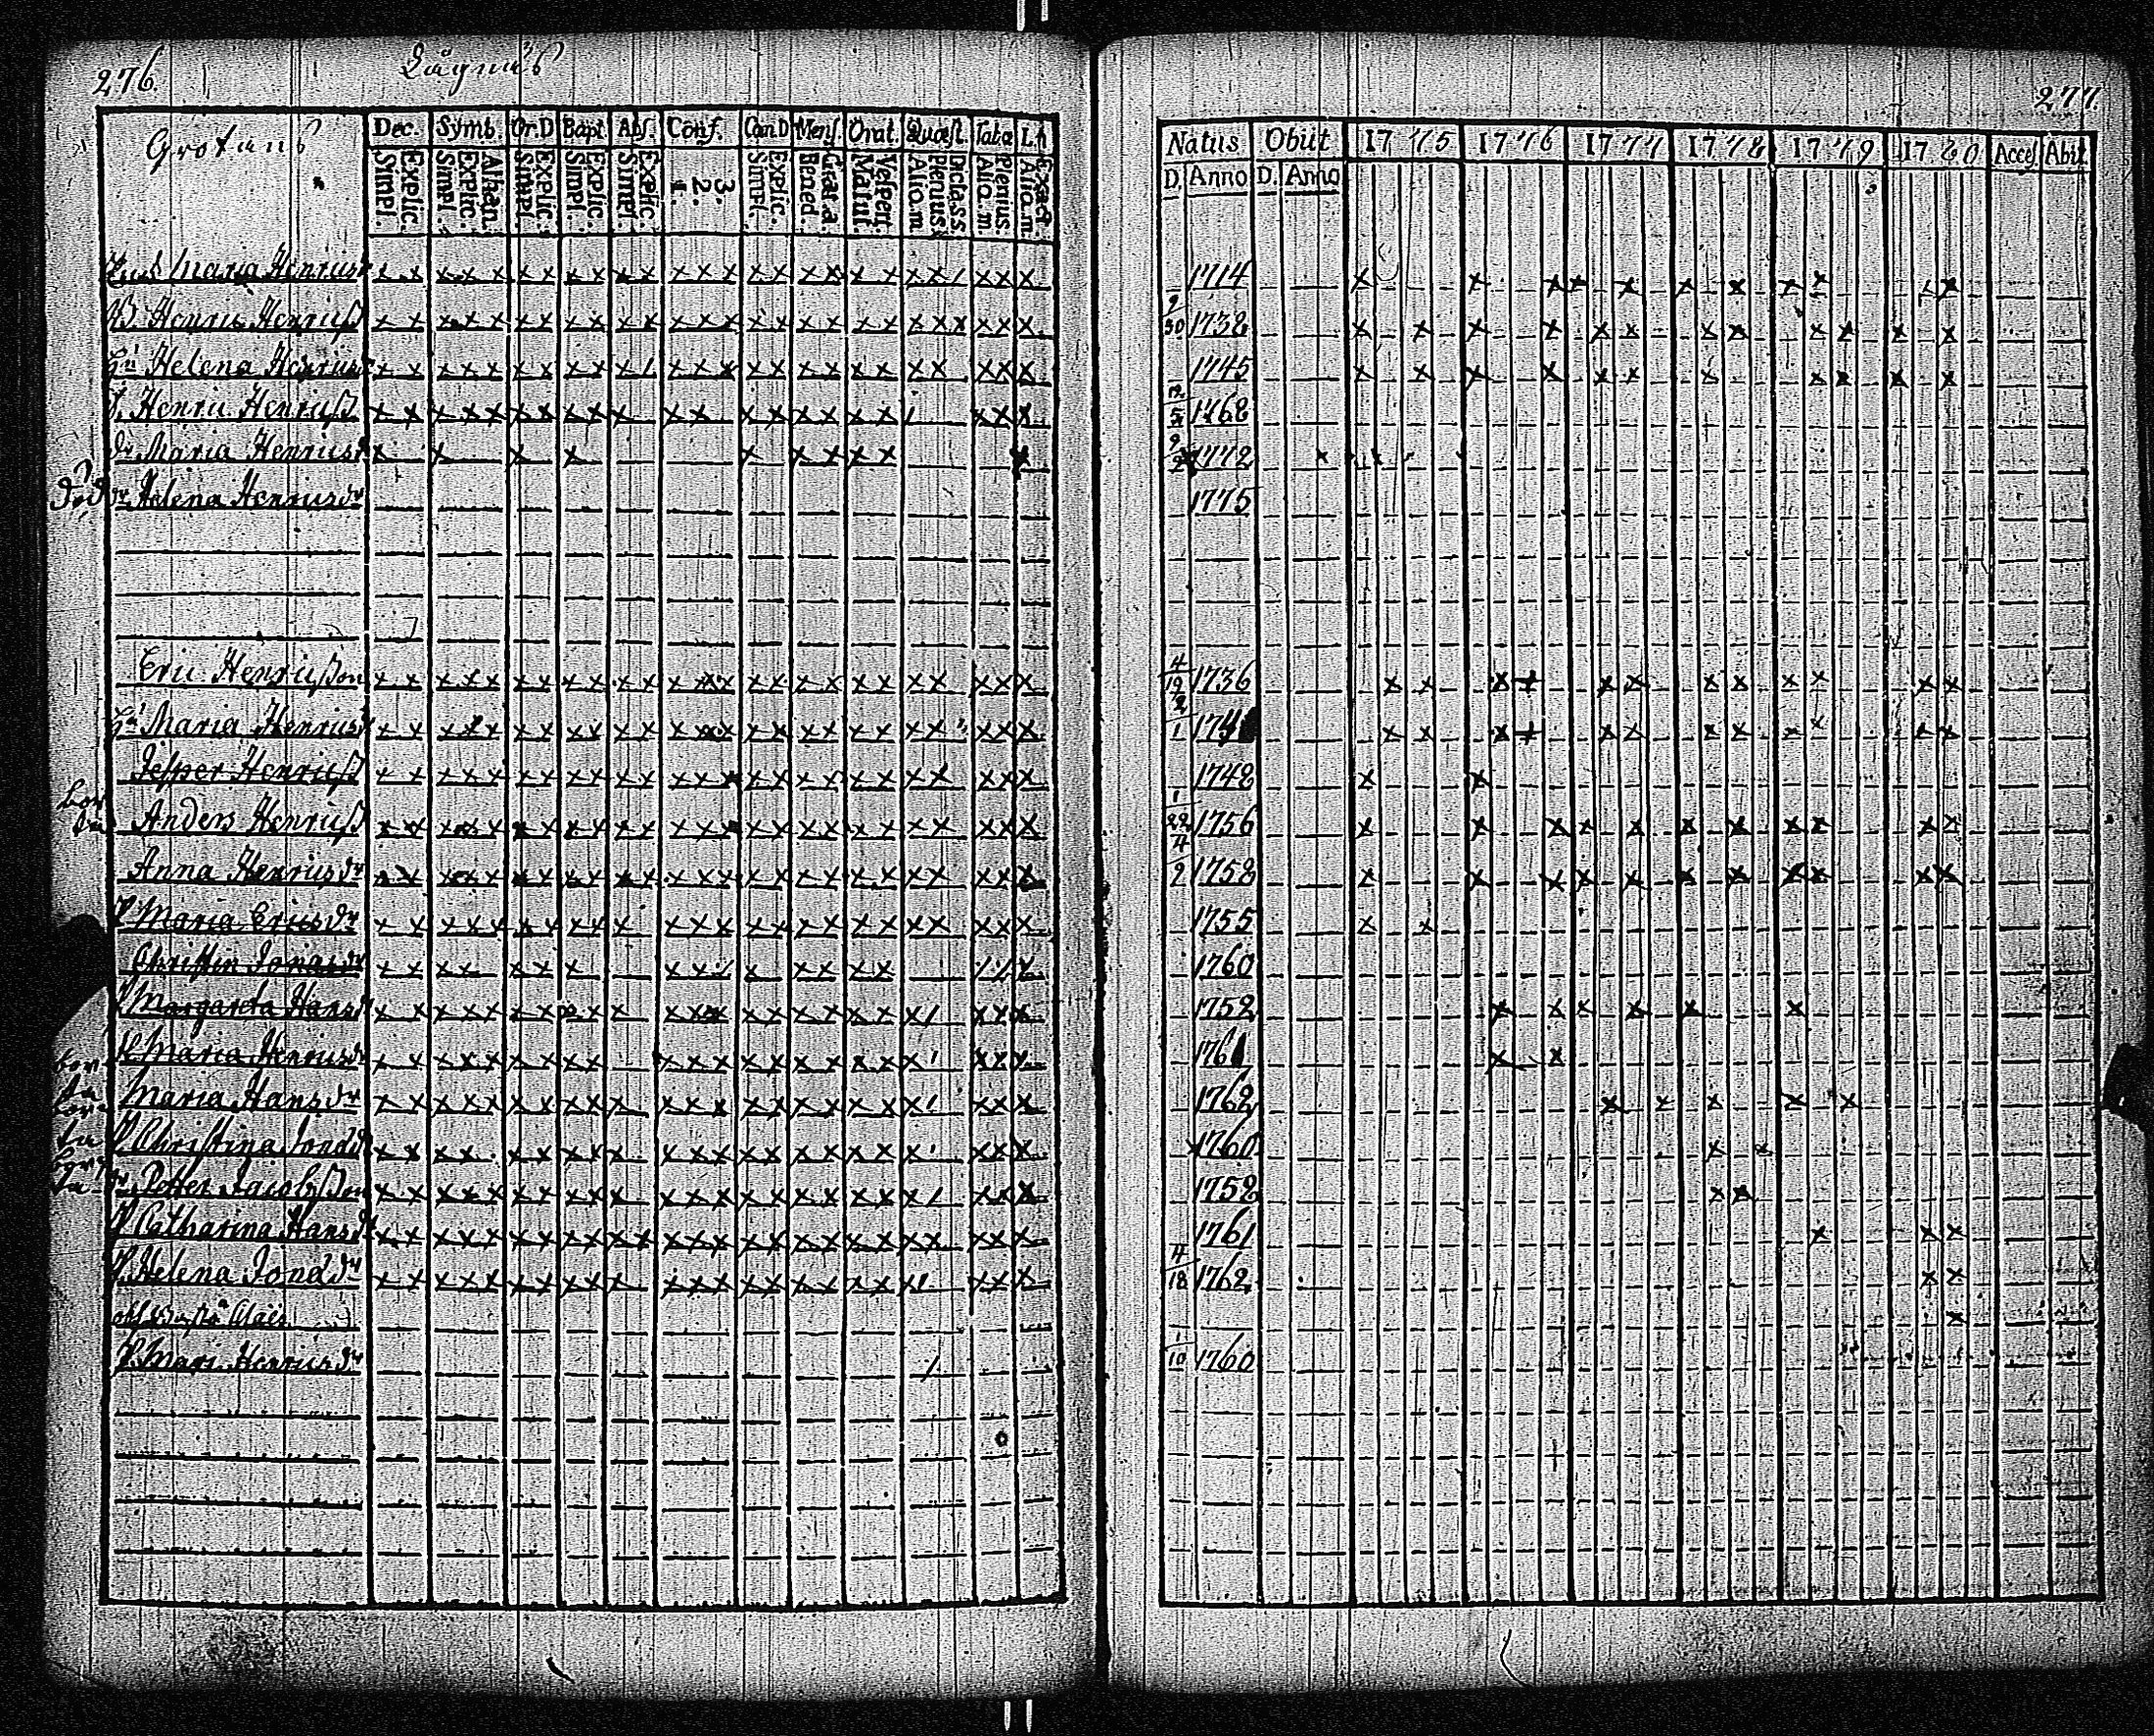 276.
Lågnäs
277
Grotans
Dec. Symb. Or.D Bapt. Abs. Conf. Can.D Mens. Orat. Quæst. Tabæ L.
Simpl. Explic. Simpl. Explic. Athan. Simpl. Explic. Simpl. Explic. Simpl. Explic. 1. 2. 3. Simpl. Explic. Bened. Grat.a. Matut. Vespert. Alio.m Plenius Dicta.s.s. Alio.m. Plenius. Alio.m. Exact.
Natus Obiit 1775 1776 1777 1778 1779 1780 Accef. Abit.
D. Anno D. Anno
Maria Henrics 1714
B. Henric Henricss 9/30 1738
Hu Helena Henrics 1745
S. Henric Henricss 12/5 1768
dr Maria Henrics 9/2 1772
död dr Helena Henricsdr 1775
Eric Henricsson 4/19 1736
Hu Maria Henrics 2/1 174
Jesper Henricss 1748
Anders Henricss 1/22 1756
Anna Henricsdr 4/2 1758
P Maria Ericsdr 1755
Christin Jonasdr 1760
P Margareta Hansd 1752
P Maria Henricsdr 1761
Maria Hansdr 1762
P Christina Jonsd 1760
dr Petter Jacobsson 1758
P Catharina Hansdr 1761
P. Helena Jonsdr 4/18 1762
P. Mari Henricsdr 1/10 1760